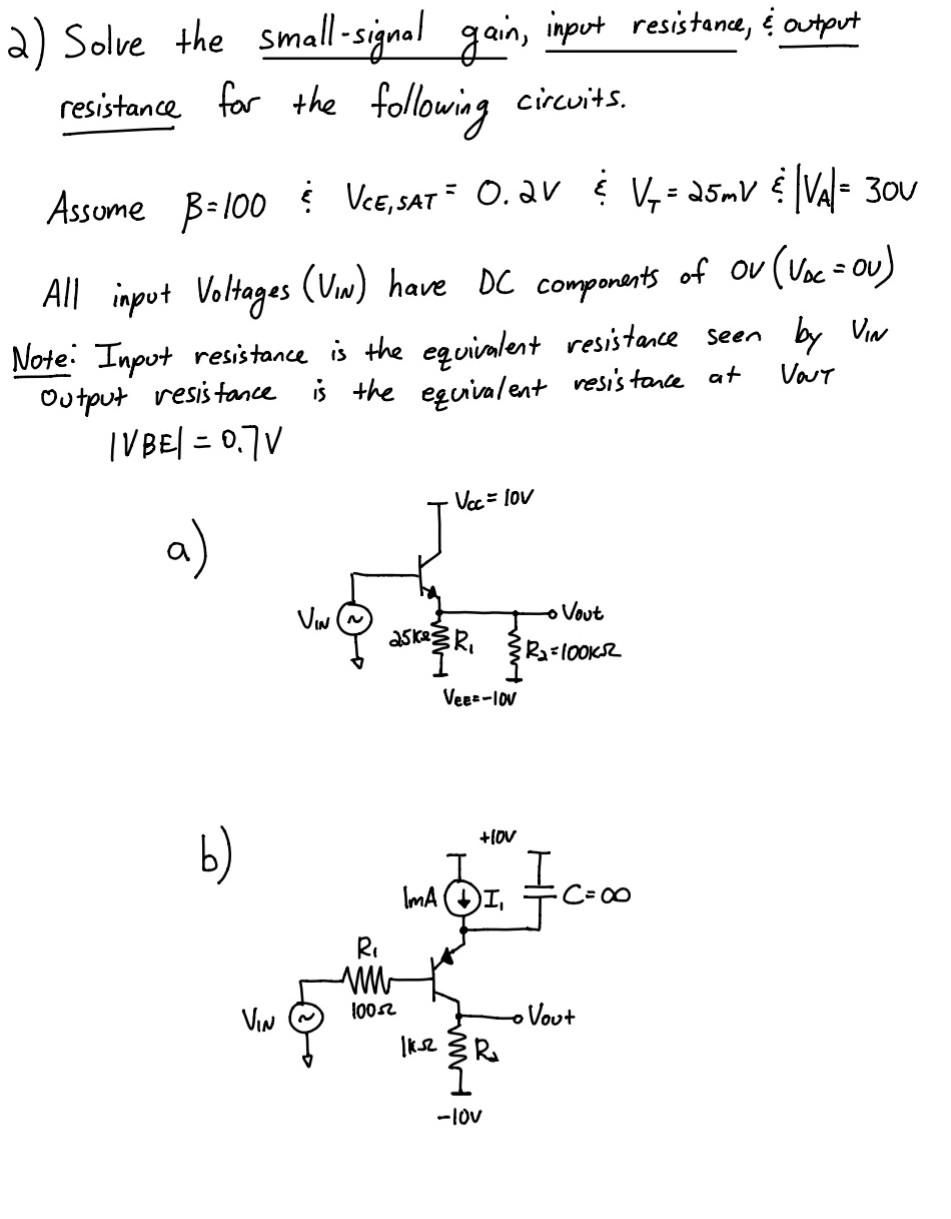 2) Solve the small-signal gain, input resistance, & output
resistance for the following circuits.
Assume β=100 & VCE,SAT = 0.2V & VT = 25mV & |VA| = 30V
All input Voltages (VIN) have DC components of 0V (VDC = 0V)
Note: Input resistance is the equivalent resistance seen by VIN
Output resistance is the equivalent resistance at VOUT
|VBE| = 0.7V
a)
Vcc = 10V
VIN
~
25KΩ
R1
Vout
R2=100KΩ
VEE=-10V
b)
+10V
1mA
I1
C=∞
R1
100Ω
VIN
~
Vout
1kΩ
R2
-10V